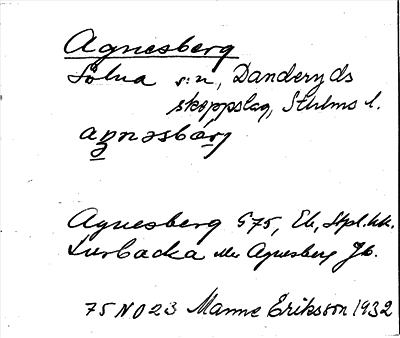 Agnesberg
Solna s:n, Danderyds
skeppslag, Sthlms l.
aŋnəsbárj
Agnesberg 975, Ek, Stpl. kk.
Lurbacka elle Agnesberg Jb.
75 NO 23 Manne Eriksson 1932